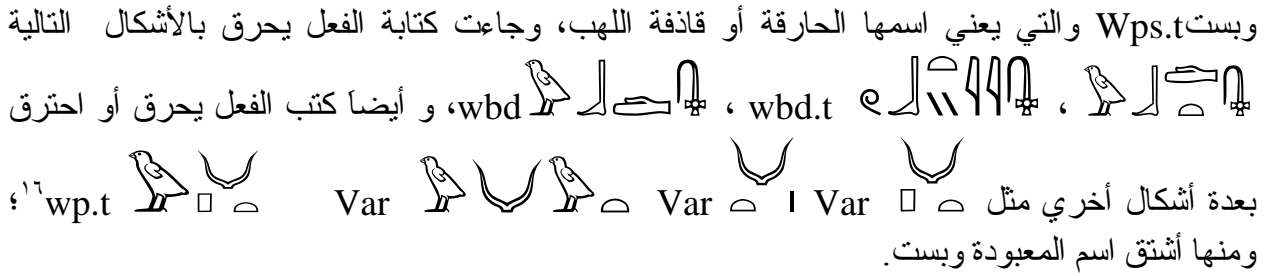 وبست Wps.t والتي يعني اسمها الحارقة أو قاذفة اللهب، وجاءت كتابة الفعل يحرق بالأشكال التالية
، wbd.t ، wbd، و أيضاَ كتب الفعل يحرق أو احترق
بعدة أشكال أخري مثل Var Var Var wp.t١٦؛
ومنها أشتق اسم المعبودة وبست.